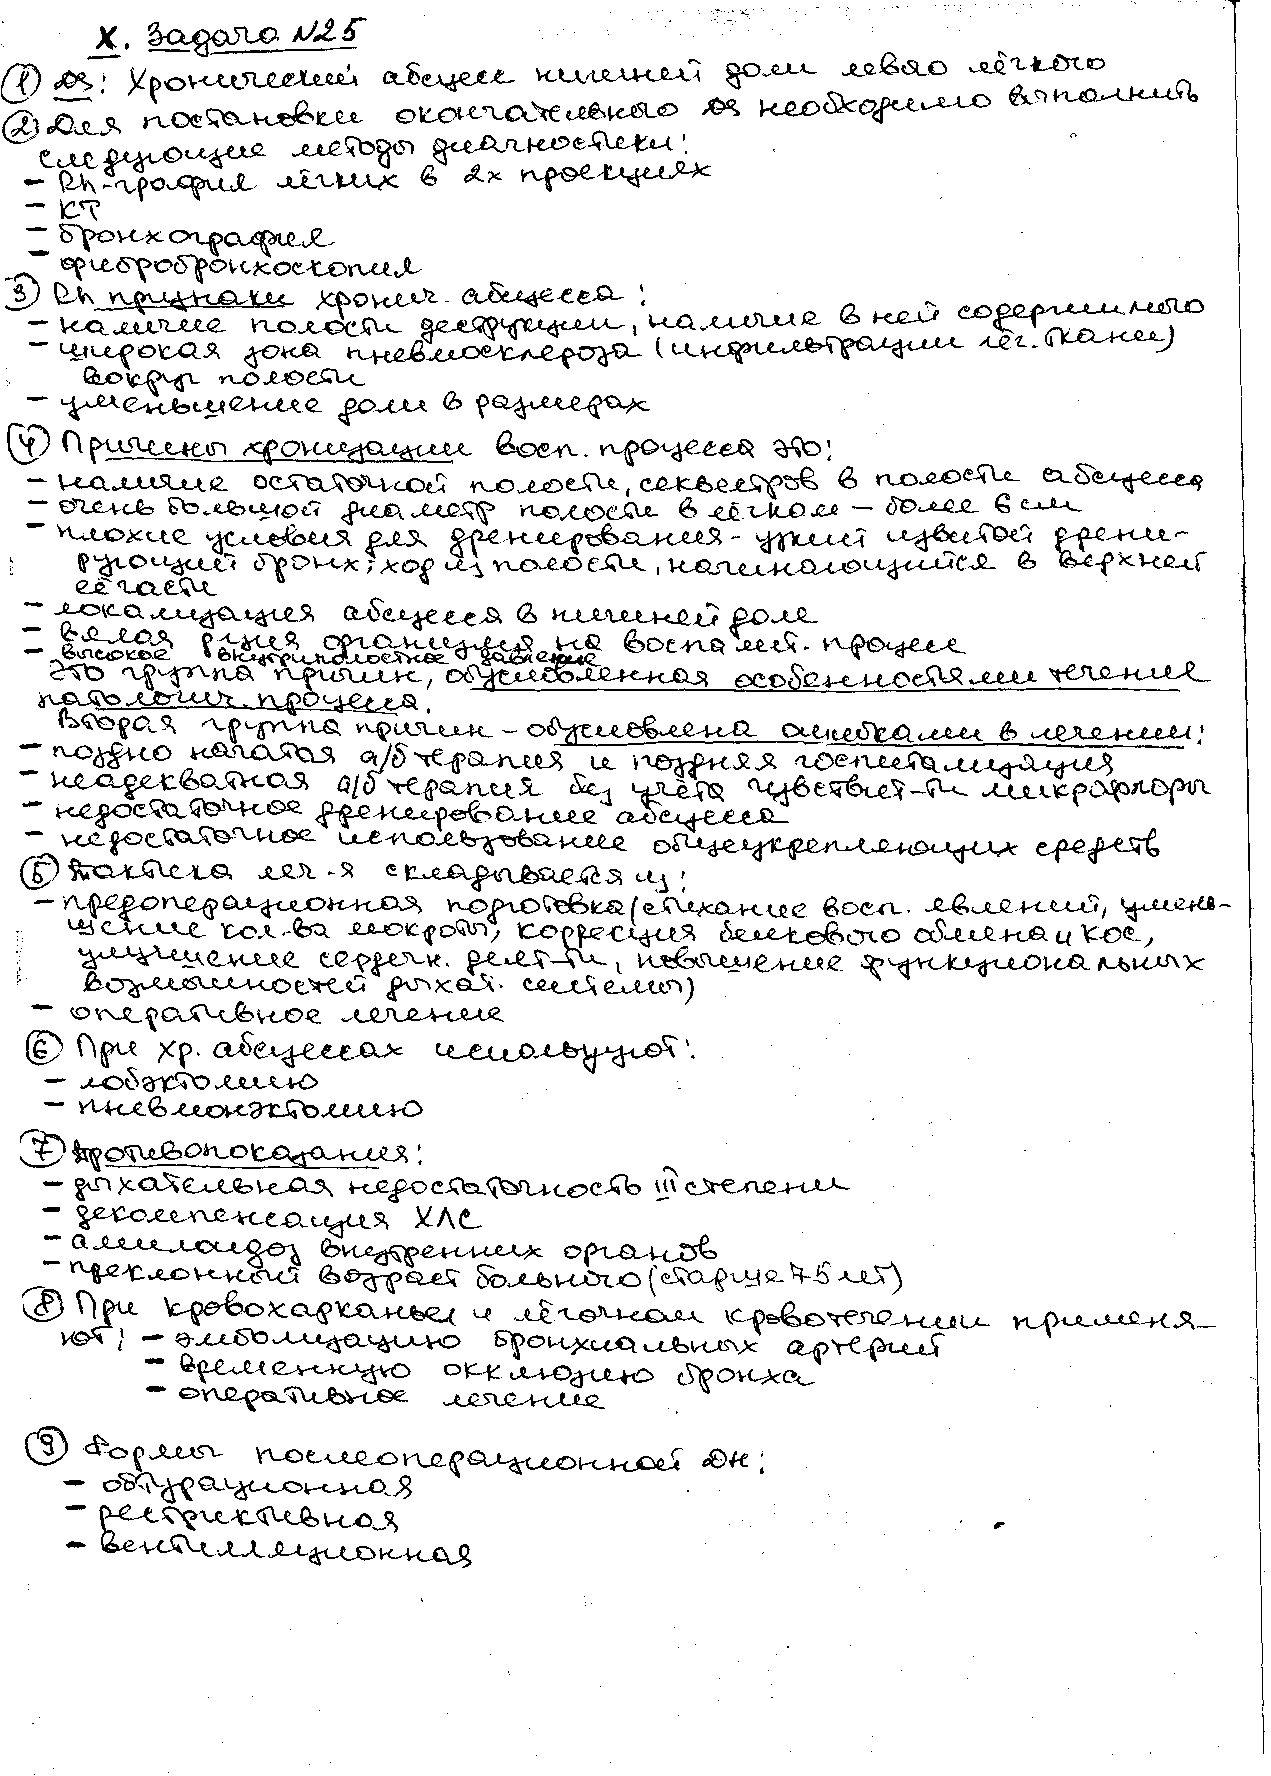 X. Задача №25
① Ds: Хронический абсцесс нижней доли левого лёгкого
② Для постановки окончательного Ds необходимо выполнить
следующие методы диагностики:
- Rh-графия лёгких в 2х проекциях
- КТ
- бронхография
- фибробронхоскопия
③ Rh признаки хронич. абсцесса:
- наличие полости деструкции, наличие в ней содержимого
- широкая зона пневмосклероза (инфильтрации лёг. ткани)
вокруг полости
- уменьшение доли в размерах
④ Причины хронизации восп. процесса это:
- наличие остаточной полости, секвестров в полости абсцесса
- очень большой диаметр полости в лёгком – более 6 см
- плохие условия для дренирования - узкий извитой дрени-
рующий бронх; ход из полости, начинающийся в верхней
её части
- локализация абсцесса в нижней доле
- вялая р-ция организма на воспалит. процесс
- высокое внутриполостное давление
Это группа причин, обусловленная особенностями течения
патологич. процесса.
Вторая группа причин - обусловлена ошибками в лечении:
- поздно начатая а/б терапия и поздняя госпитализация
- неадекватная а/б терапия без учёта чувствит-ти микрофлоры
- недостаточное дренирование абсцесса
- недостаточное использование общеукрепляющих средств
⑤ Тактика леч-я складывается из:
- предоперационная подготовка (стихание восп. явлений, умень-
шение кол-ва мокроты, коррекция белкового обмена и КОС,
улучшение сердечн. деят-ти, повышение функциональных
возможностей дыхат. системы)
- оперативное лечение
⑥ При хр. абсцессах используют:
- лобэктомию
- пневмонэктомию
⑦ Противопоказания:
- дыхательная недостаточность III степени
- декомпенсация ХЛС
- амилоидоз внутренних органов
- преклонный возраст больного (старше 75 лет)
⑧ При кровохарканьи и лёгочном кровотечении применя-
ют: - эмболизацию бронхиальных артерий
- временную окклюзию бронха
- оперативное лечение
⑨ Формы послеоперационной ДН:
- обтурационная
- рестриктивная
- вентилляционная